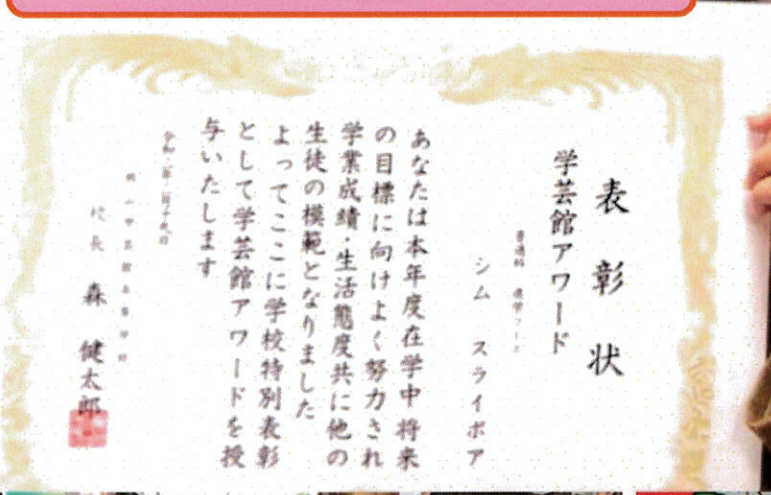 表彰状
学芸館アワード
普通科 進学コース
シム スライボア
あなたは本年度在学中 将来
の目標に向けよく努力され
学業成績・生活態度共に他の
生徒の模範となりました
よってここに学校特別表彰
として学芸館アワードを授
与いたします
校長 森 健太郎